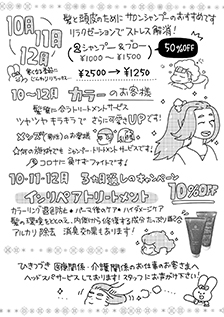 10月
11月
12月
髪と頭皮のために サロンシャンプーのおすすめです
リラクゼーションでストレス解消!
シャンプー&ブロー
¥1000〜¥1500
50%OFF
¥2500→¥1250
10〜12月 カラーのお客様
髪質に合うトリートメントサービス
ツヤツヤ キラキラで さらに可愛さUPです!
メンズ
シャンプー・トリートメントサービスです!
コロナに負けずファイトです!
10-11-12月 3ヵ月通しのキャンペーン
10%OFF
インリペアトリートメント
カラーリング退色防止・パーマ後のケア・ハイダメージケア
髪の環境をととのえ、内側から修復する成分たっぷり配合
アルカリ除去 消臭効果もあります!
ひきつづき 医療関係・介護関係のお仕事のお客さまへ
ヘッドスパサービスしております! スタッフにお声がけ下さい!